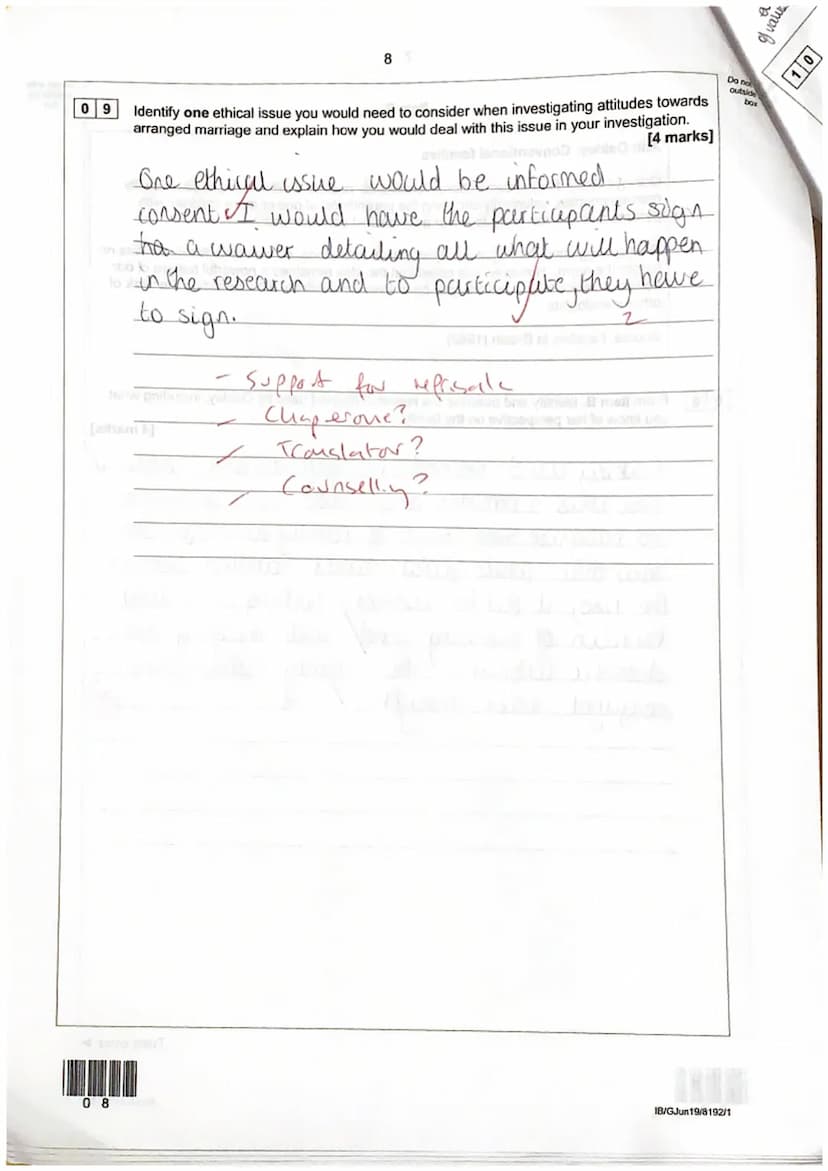 8
Do not
outside
box
g value
1 0
0 9 Identify one ethical issue you would need to consider when investigating attitudes towards
arranged marriage and explain how you would deal with this issue in your investigation.
[4 marks]
One ethical issue would be informed
consent. I would have the participants sign
a waiver detailing all what will happen
in the research and to participate, they have
to sign.
2
- Support for refusals
- Chaperone?
- Translator?
- Counselling?
0 8
IB/G/Jun19/8192/1